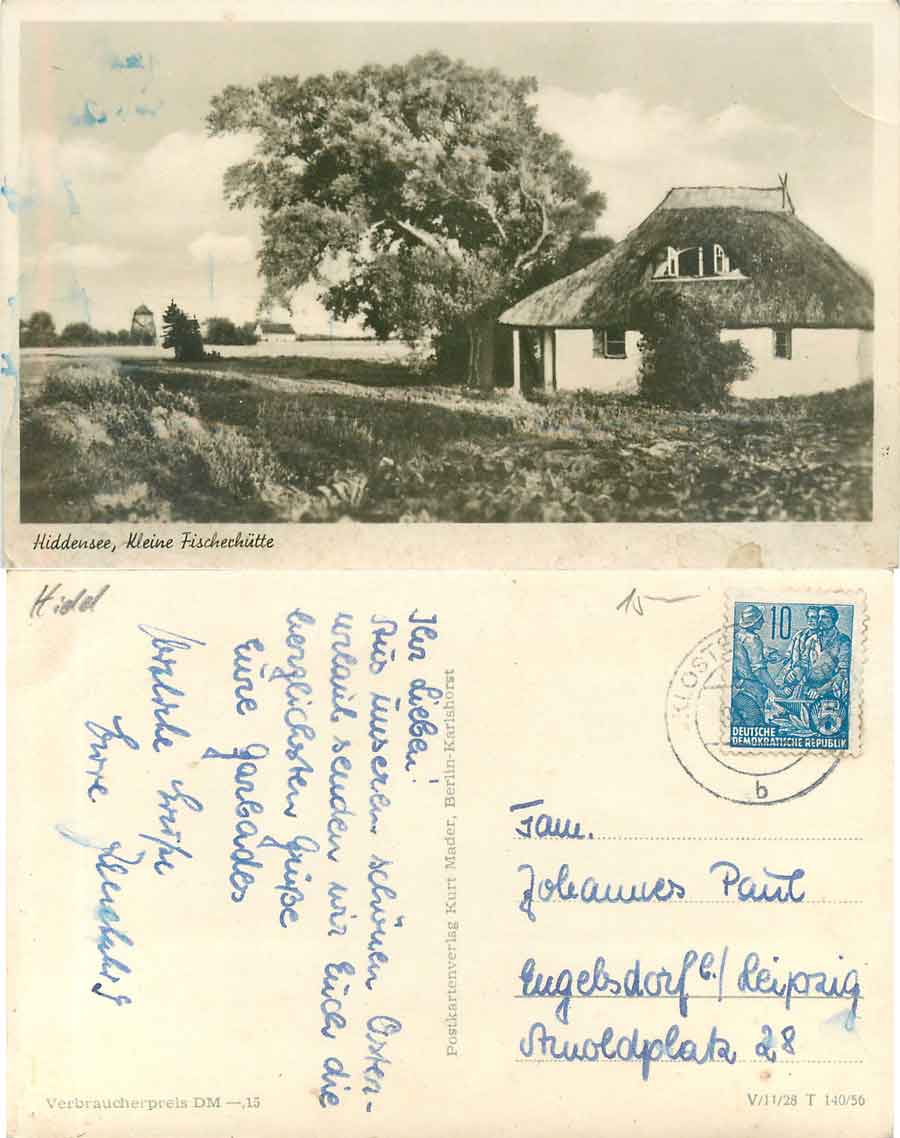 Hiddensee, Kleine Fischerhütte
Hidd
15—
10
5
DEUTSCHE
DEMOKRATISCHE REPUBLIK
KLOST
b
Ihr Lieben!
Aus unserem schönen Osten-
urlaub senden wir Euch die
herzlichsten Grüße
Eure Garbades
Herzliche Grüße
Eure
Postkartenverlag Kurt Mader, Berlin-Karlshorst
Fam.
Johannes Paul
Engelsdorf b./ Leipzig
Arnoldplatz 28
Verbraucherpreis DM —,15
V/11/28 T 140/56